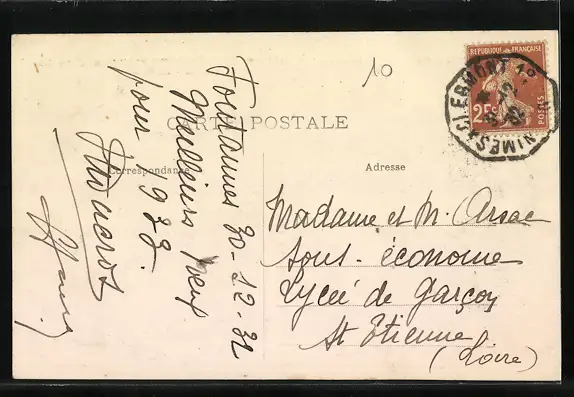 10
RÉPUBLIQUE FRANÇAISE
25c
POSTES
CLERMONT A NIMES 1º
CARTE POSTALE
Correspondance
Adresse
30-12-32
Meilleurs vœux
pour 1933.
Madame et M. Arsac
Sous-économe
Lycée de Garçons
St Etienne
(Loire)